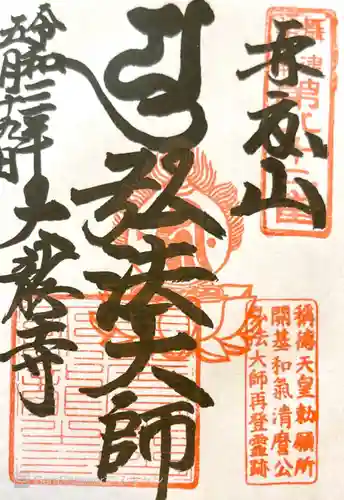 再度山
弘法大師
令和三年
五月十九日
大龍寺
稱徳天皇勅願所
開基和氣清麿公
弘法大師再登靈跡